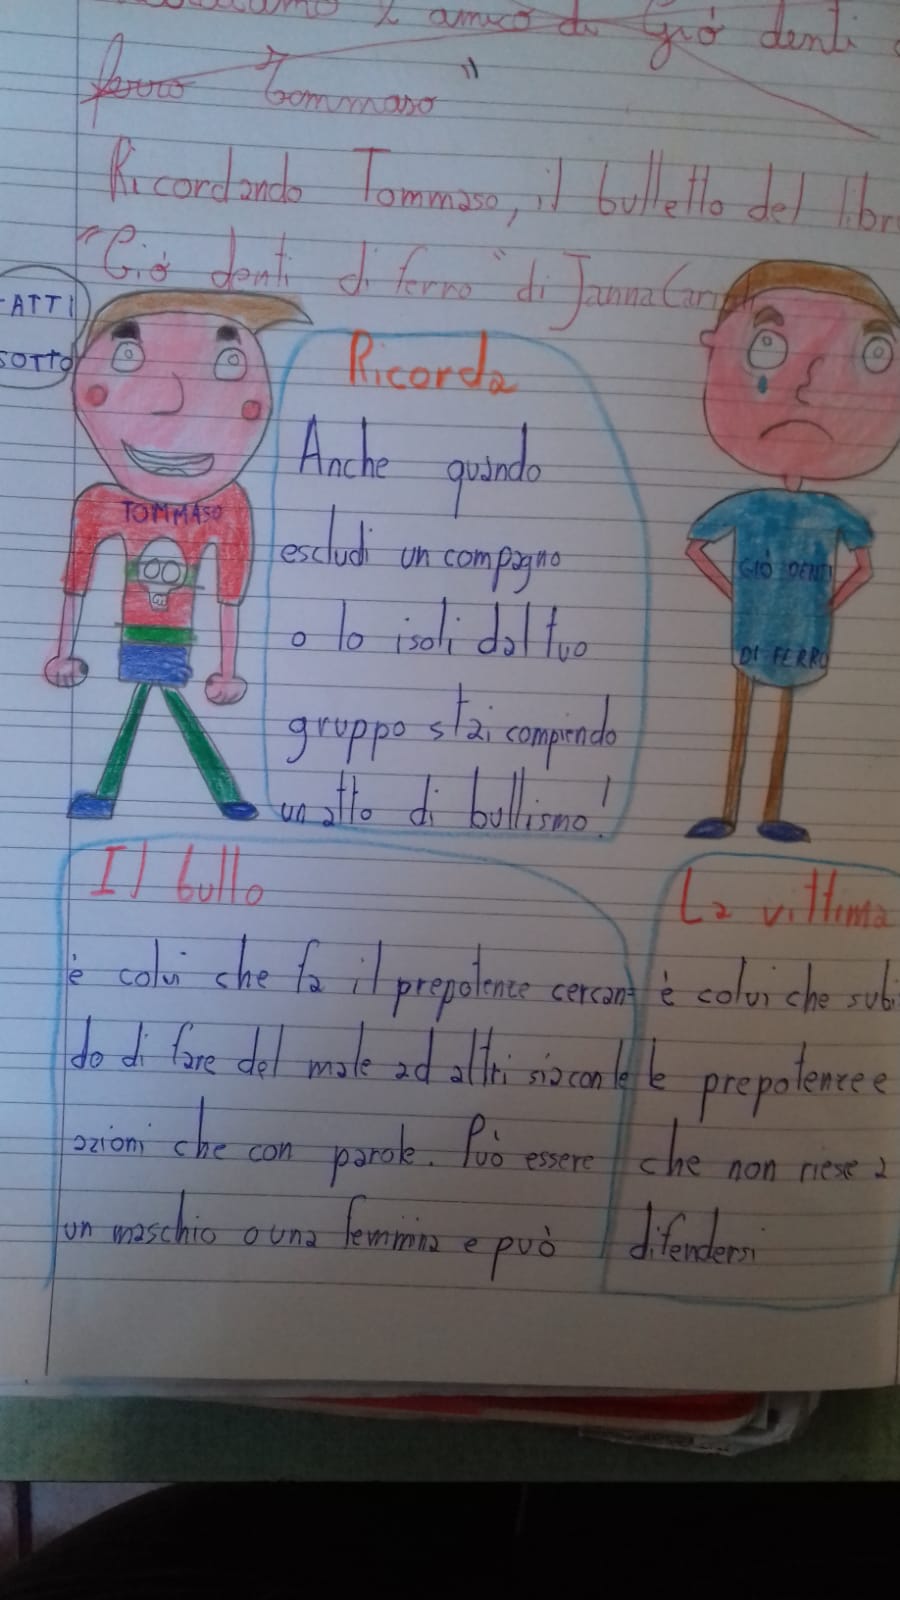 2 amico di Giò denti
ferro Tommaso "
Ricordando Tommaso, il bulletto del libr
"Giò denti di ferro" di Janna Carioli
FATTI
SOTTO
Ricorda
Anche quando
escludi un compagno
o lo isoli dal tuo
gruppo stai compiendo
un atto di bullismo!
TOMMASO
GIÒ DENTI
DI FERRO
Il bullo
è colui che fa il prepotente cercan-
do di fare del male ad altri sia con le
azioni che con parole. Può essere
un maschio o una femmina e può
La vittima
è colui che subi
le prepotenze e
che non riese a
difendersi